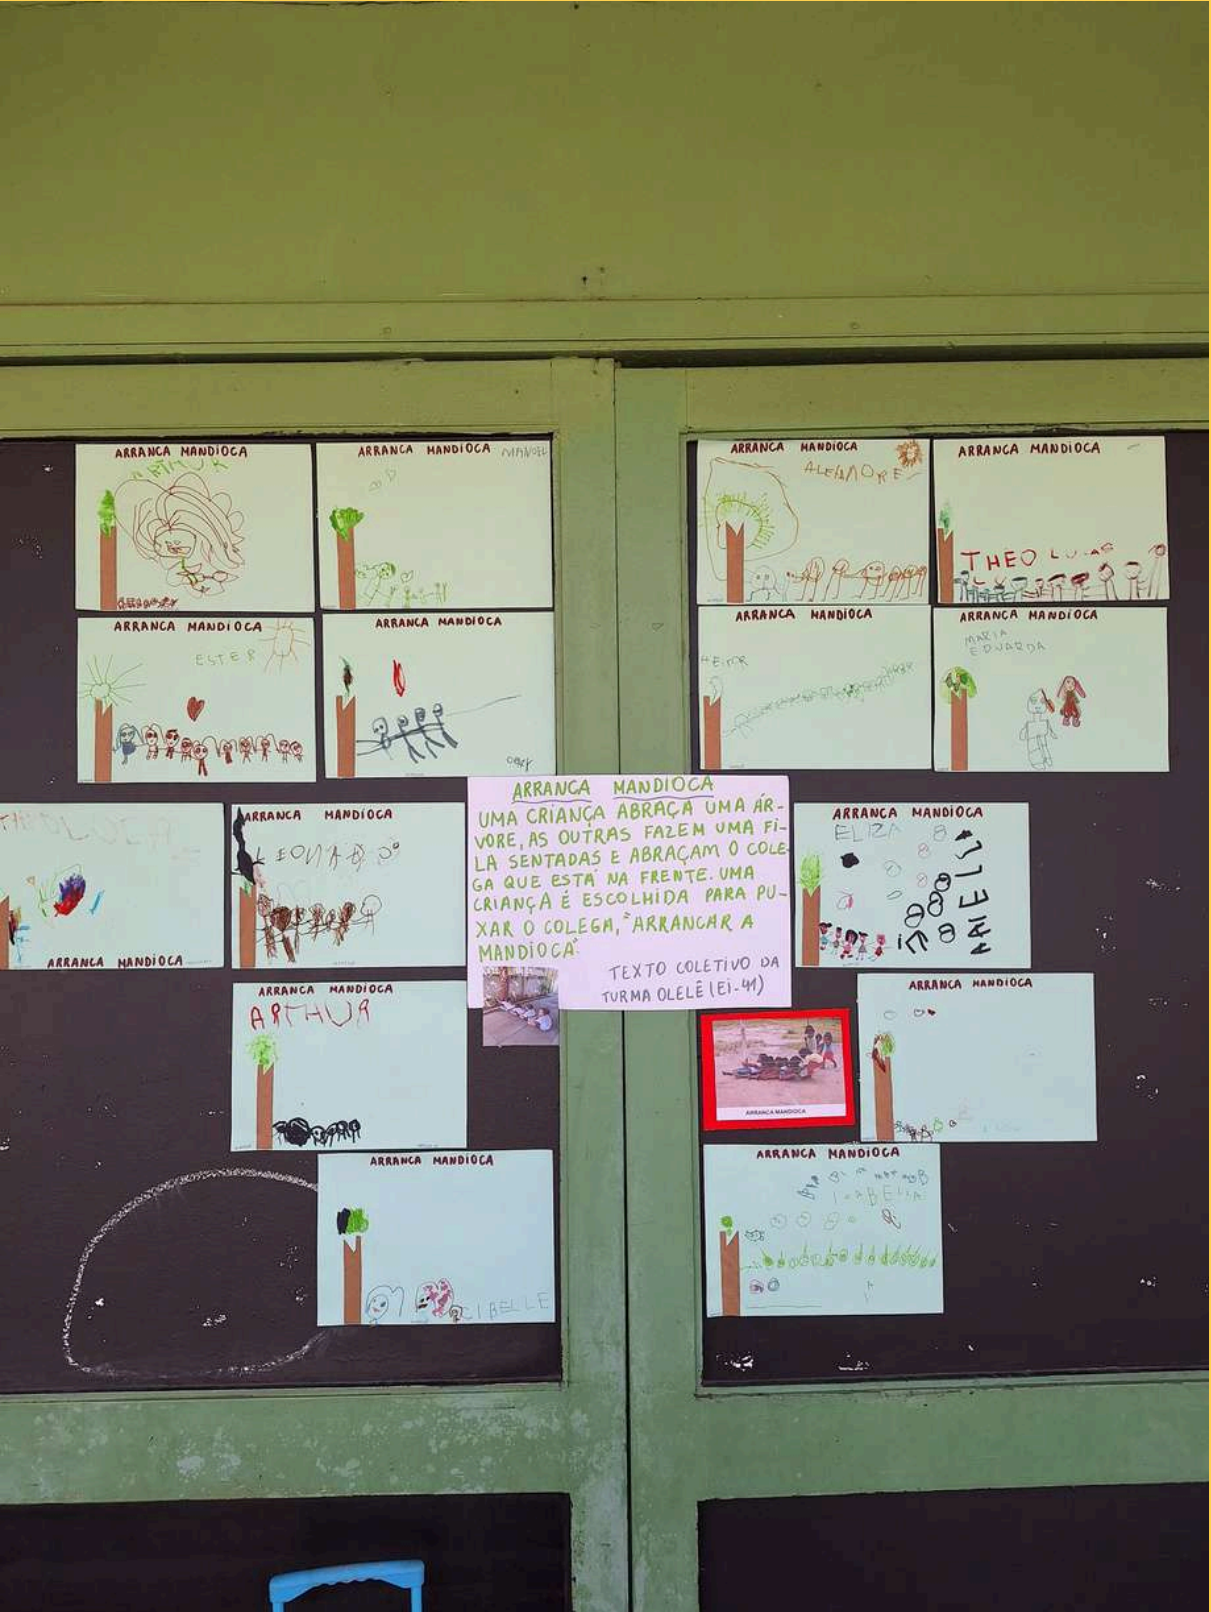 ARRANCA MANDIOCA
ARTHUR
ARRANCA MANDIOCA
MANOEL
ARRANCA MANDIOCA
ARRANCA MANDIOCA
THEO LUCAS
ARRANCA MANDIOCA
ESTER
ARRANCA MANDIOCA
ARRANCA MANDIOCA
HEITOR
ARRANCA MANDIOCA
MARIA
EDUARDA
ARRANCA MANDIOCA
ARRANCA MANDIOCA
ARRANCA MANDIOCA
UMA CRIANÇA ABRAÇA UMA ÁR-
VORE, AS OUTRAS FAZEM UMA FI-
LA SENTADAS E ABRAÇAM O COLE-
GA QUE ESTÁ NA FRENTE. UMA
CRIANÇA É ESCOLHIDA PARA PU-
XAR O COLEGA, "ARRANCAR A
MANDIOCA".
TEXTO COLETIVO DA
TURMA OLELÊ (EI-41)
ARRANCA MANDIOCA
ELIZA
ARRANCA MANDIOCA
ARTHUR
ARRANCA MANDIOCA
ARRANCA MANDIOCA
ARRANCA MANDIOCA
CIBELLE
ARRANCA MANDIOCA